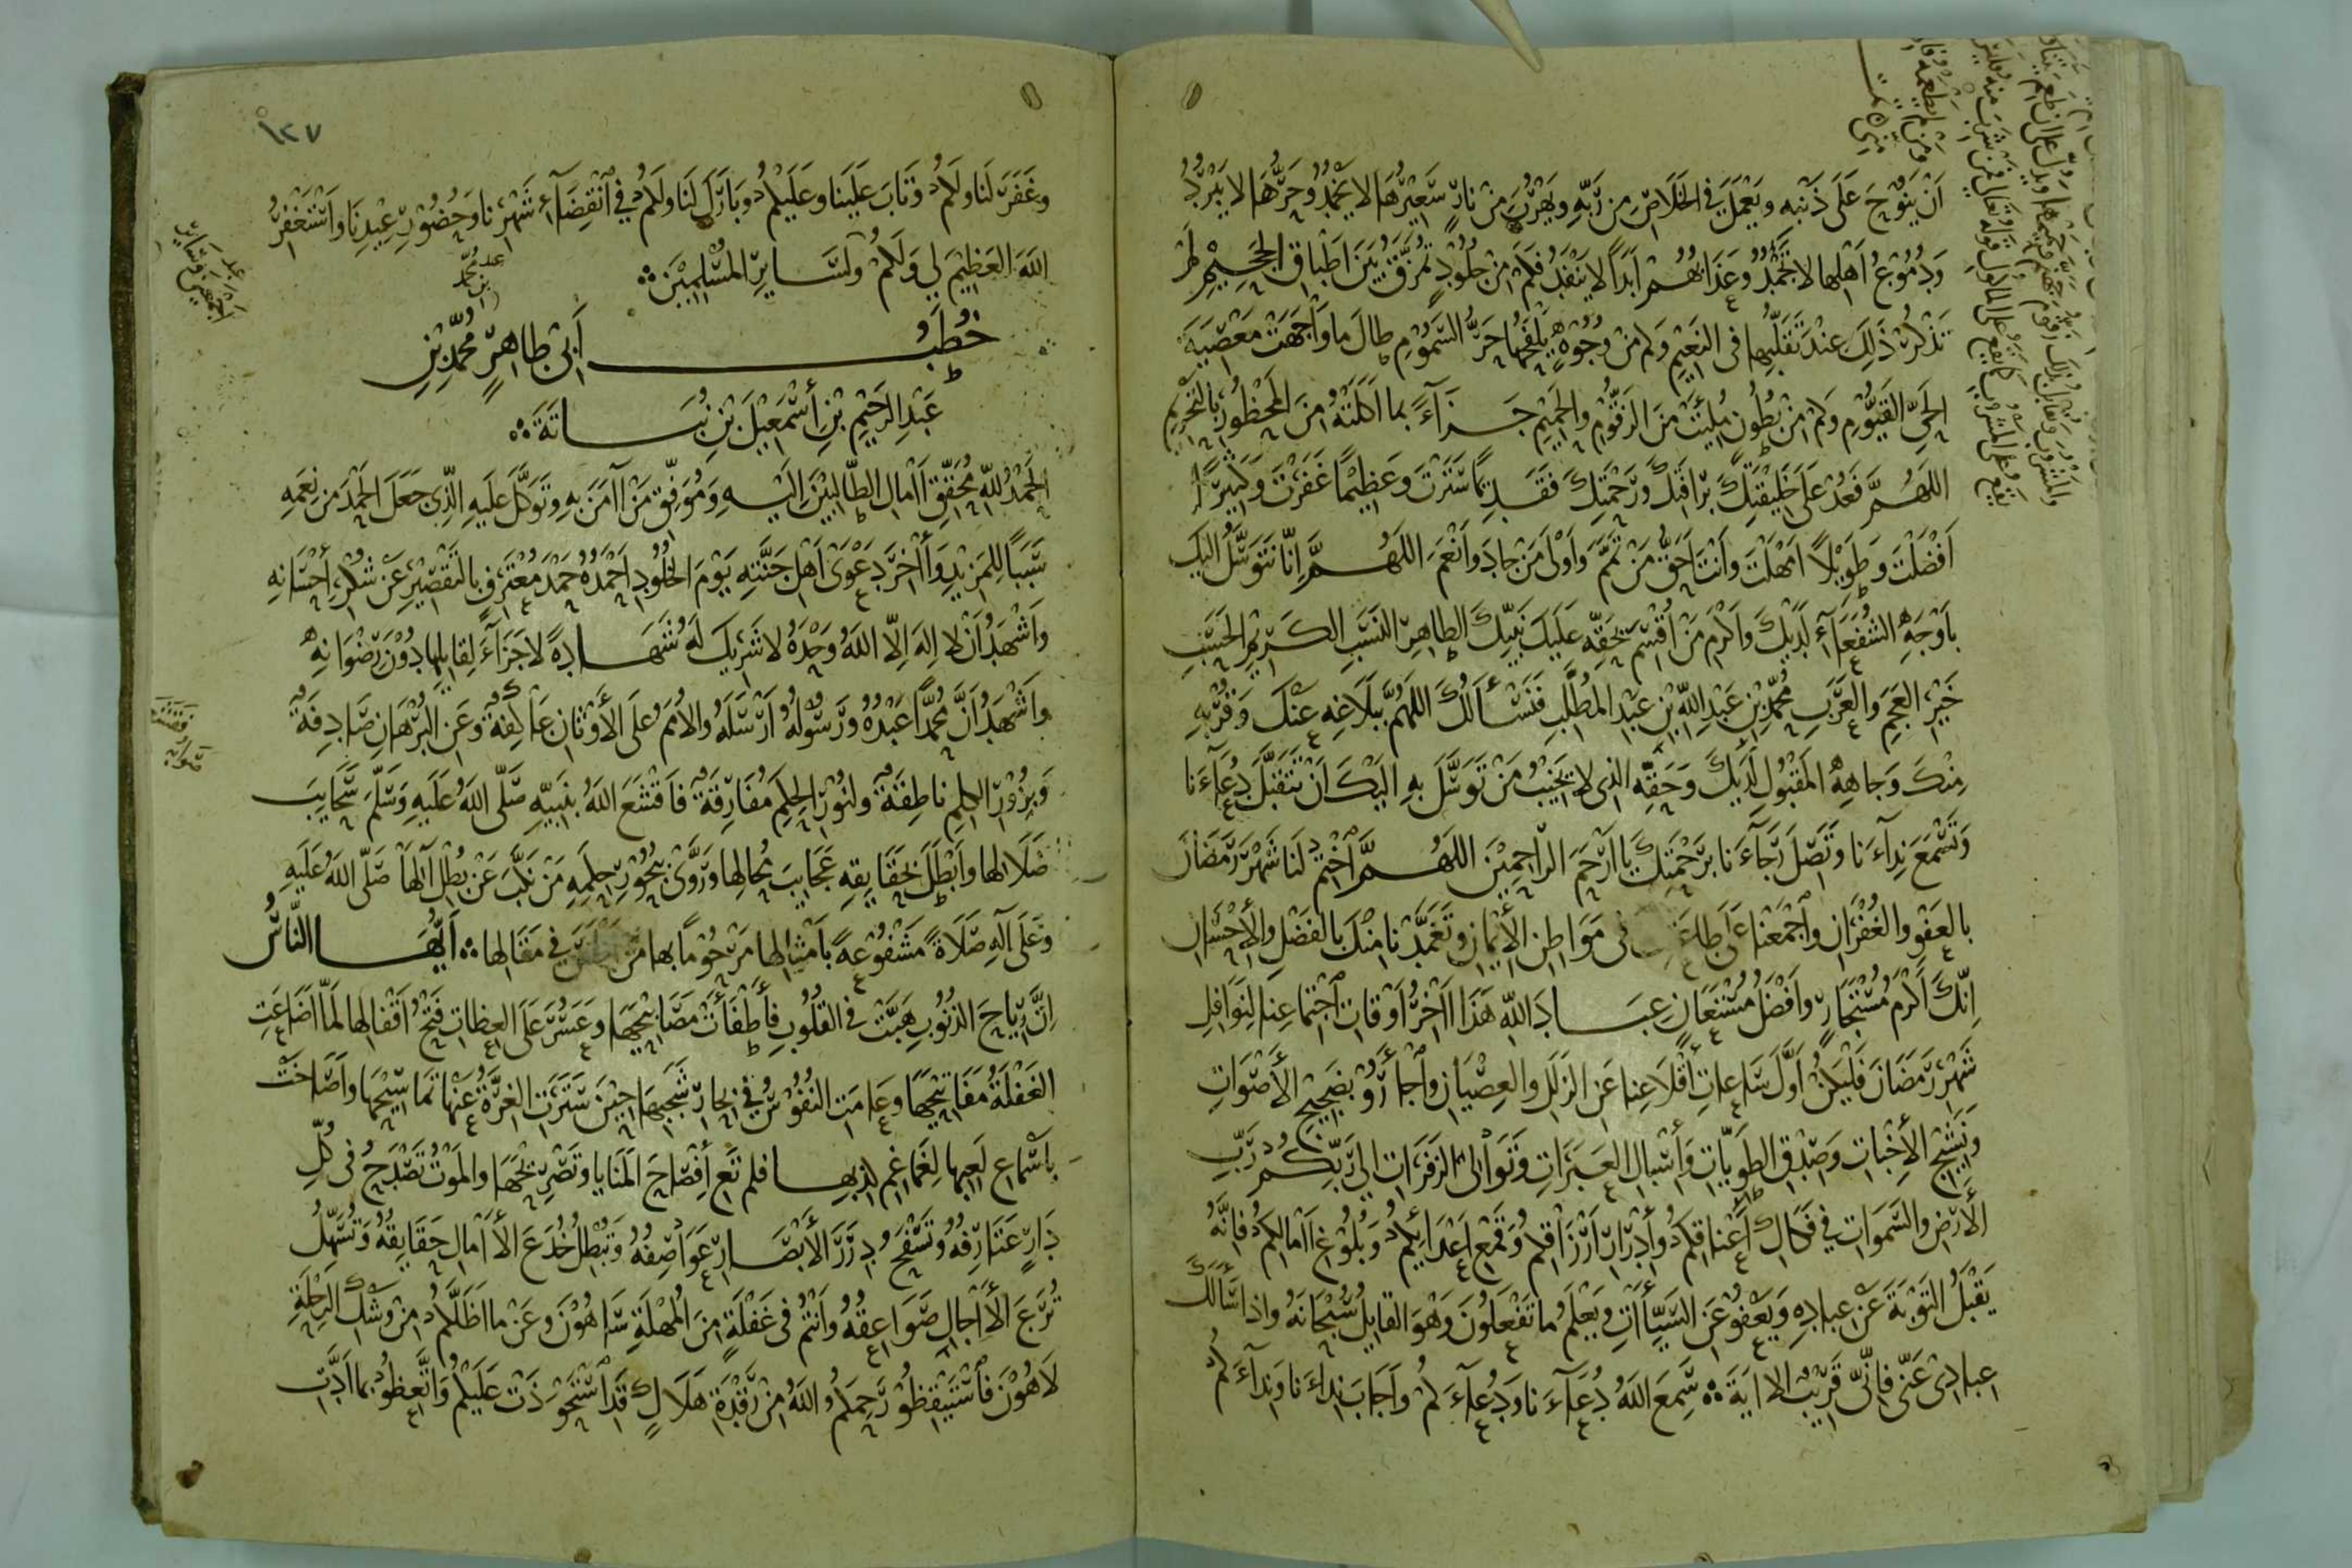 أن ينوح على ذنبه ويعمل في الخلاص من ربه ويهرب من نار سعيرها لا يخمد وحرها لا يبرد
ودموع أهلها لا تجمد وعذابهم أبدا لا ينفد فكم من جلود تمزق بين أطباق الجحيم لم
تذكر ذلك عند تقلبها في النعيم وكم من وجوه يلفحها حر السموم طال ما واجهت معصية
الحي القيوم وكم من بطون ملئت من الزقوم والحميم جزاء بما أكلته من المحظور بالتحريم
اللهم فعد على خليقتك برأفتك ورحمتك فقديما سترت وعظيما غفرت وكثيرا
أفضلت وطويلا أمهلت وأنت أحق من تمم وأولى من جاد وأنعم اللهم إنا نتوسل إليك
بأوجه الشفعاء لديك وأكرم من أقسم بحقه عليك نبيك الطاهر النسب الكريم الحسب
خير العجم والعرب محمد بن عبد الله بن عبد المطلب فنسألك اللهم ببلاغه عنك وقربه
منك وجاهه المقبول لديك وحقه الذي لا يخيب من توسل به إليك أن تتقبل دعاءنا
وتسمع نداءنا وتصل رجاءنا برحمتك يا أرحم الراحمين اللهم اختم لنا شهر رمضان
بالعفو والغفران واجمعنا على في مواطن الأيمان وتغمدنا منك بالفضل والإحسان
إنك أكرم مستجار وأفضل مستعان عباد الله هذا آخر أوقات اجتماعنا لنوافل
شهر رمضان فليكن أول ساعات أقلاعنا عن الزلل والعصيان واجأروا بضجيج الأصوات
ونشيج الأخبات وصدق الطويات وأسبال العبرات وتوالي الزفرات إلى ربكم رب
الأرض والسموات في فكاك أعناقكم وأدرار أرزاقكم وقمع أعدائكم وبلوغ آمالكم فإنه
يقبل التوبة عن عباده ويعفو عن السيئات ويعلم ما تفعلون وهو القايل سبحانه وإذا سألك
عبادي عني فإني قريب الآية سمع الله دعاءنا ودعاءكم وأجاب نداءنا ونداءكم
١٢٧
وغفر لنا ولكم وتاب علينا وعليكم وبارك لنا ولكم في انقضاء شهرنا وحضور عيدنا وأستغفر
الله العظيم لي ولكم ولساير المسلمين
خطب أبي طاهر محمد بن
عبد الرحيم بن أسمعيل بن نباتة
الحمد لله محقق آمال الطالبين إليه وموفق من آمن به وتوكل عليه الذي جعل الحمد من نعمه
سببا للمزيد وآخر دعوى أهل جنته يوم الخلود أحمده حمد معترف بالتقصير عن شكر أحسانه
وأشهد أن لا إله إلا الله وحده لا شريك له شهادة لا جزاء لقايلها دون رضوانه
وأشهد أن محمدا عبده ورسوله أرسله والأمم على الأوثان عاكفة وعن البرهان صادفة
وبزور الكلم ناطقة ولنور الحلم مفارقة فأقشع الله بنبيه صلى الله عليه وسلم سحايب
ضلالها وأبطل بحقايقه عجايب محالها وروى ببحور حلمه من نكب عن بطل آلها صلى الله عليه
وعلى آله صلاة مشفوعة بأمثالها مرحوما بها من في مقالها أيها الناس
إن رياح الذنوب هبت في القلوب فأطفأت مصابيحها وعسر على العظات فتح أقفالها لما أضاعت
الغفلة مفاتيحها وعامت النفوس في بحار شجبها حين سترت الغرة عنها تماسيحها وأصاخت
بأسماع لعبها لغماغم لذبها فلم تع أفصاح المنايا وتصريحها والموت تصدح في كل
دار عتارفه وتسفح درر الأبصار عواصفه وتبطل خدع الأمال حقايقه وتسهل
ترع الآجال صواعقه وأنتم في غفلة من المهلة ساهون وعن ما أظلكم من وشك الرحلة
لاهون فاستيقظوا رحمكم الله من رقدة هلاك قد استحوذت عليكم واتعظوا بما أدبت